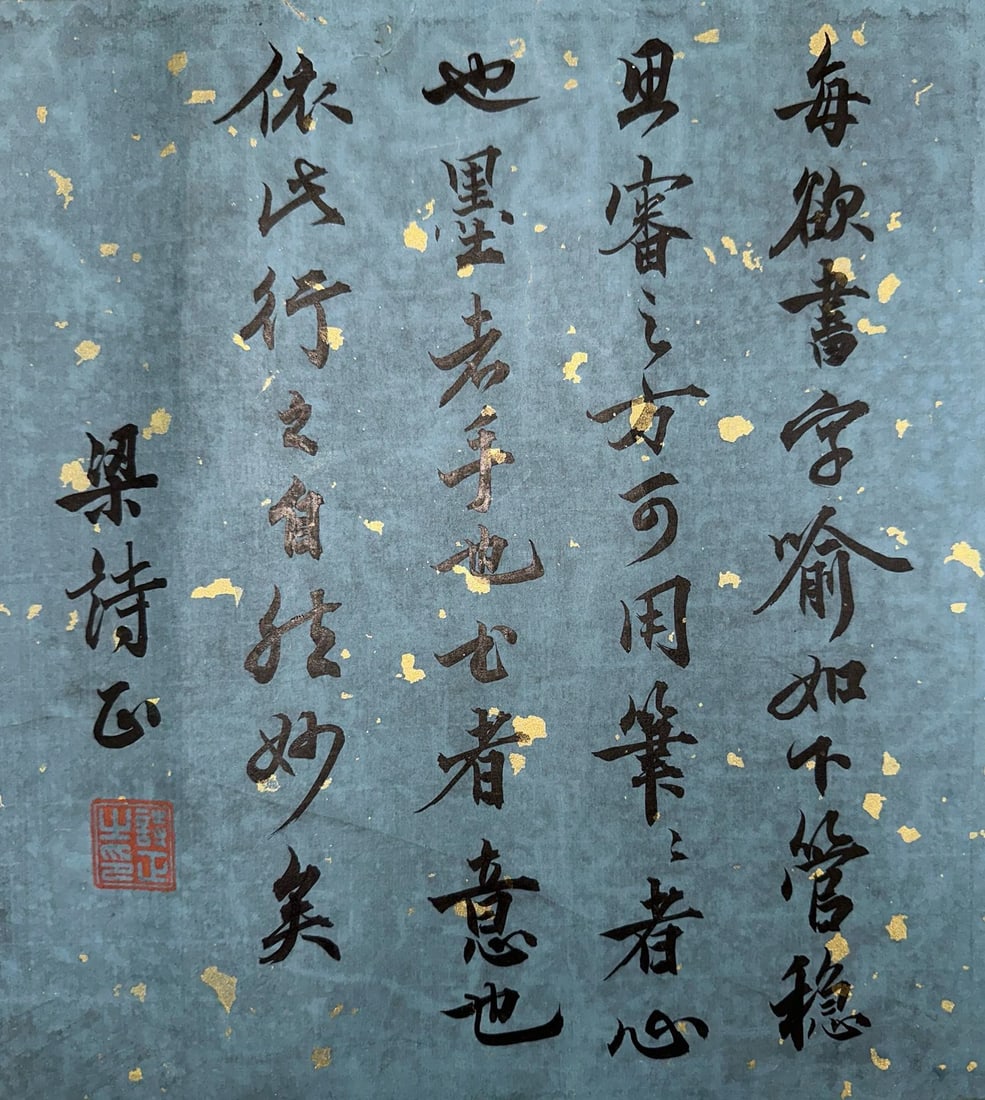 每欲書字喻如下管穩
思審之方可用筆〻者心
也墨者手也书者意也
依此行之自然妙矣
梁詩正
詩正之印